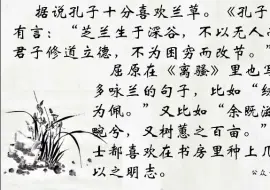 据说孔子十分喜欢兰草。《孔子
有言：“芝兰生于深谷，不以无人
君子修道立德，不为困穷而改节。”
屈原在《离骚》里也写
多咏兰的句子，比如“
为佩。”又比如“余既滋
畹兮，又树蕙之百亩。”
士都喜欢在书房里种上几
以之明志。
公众